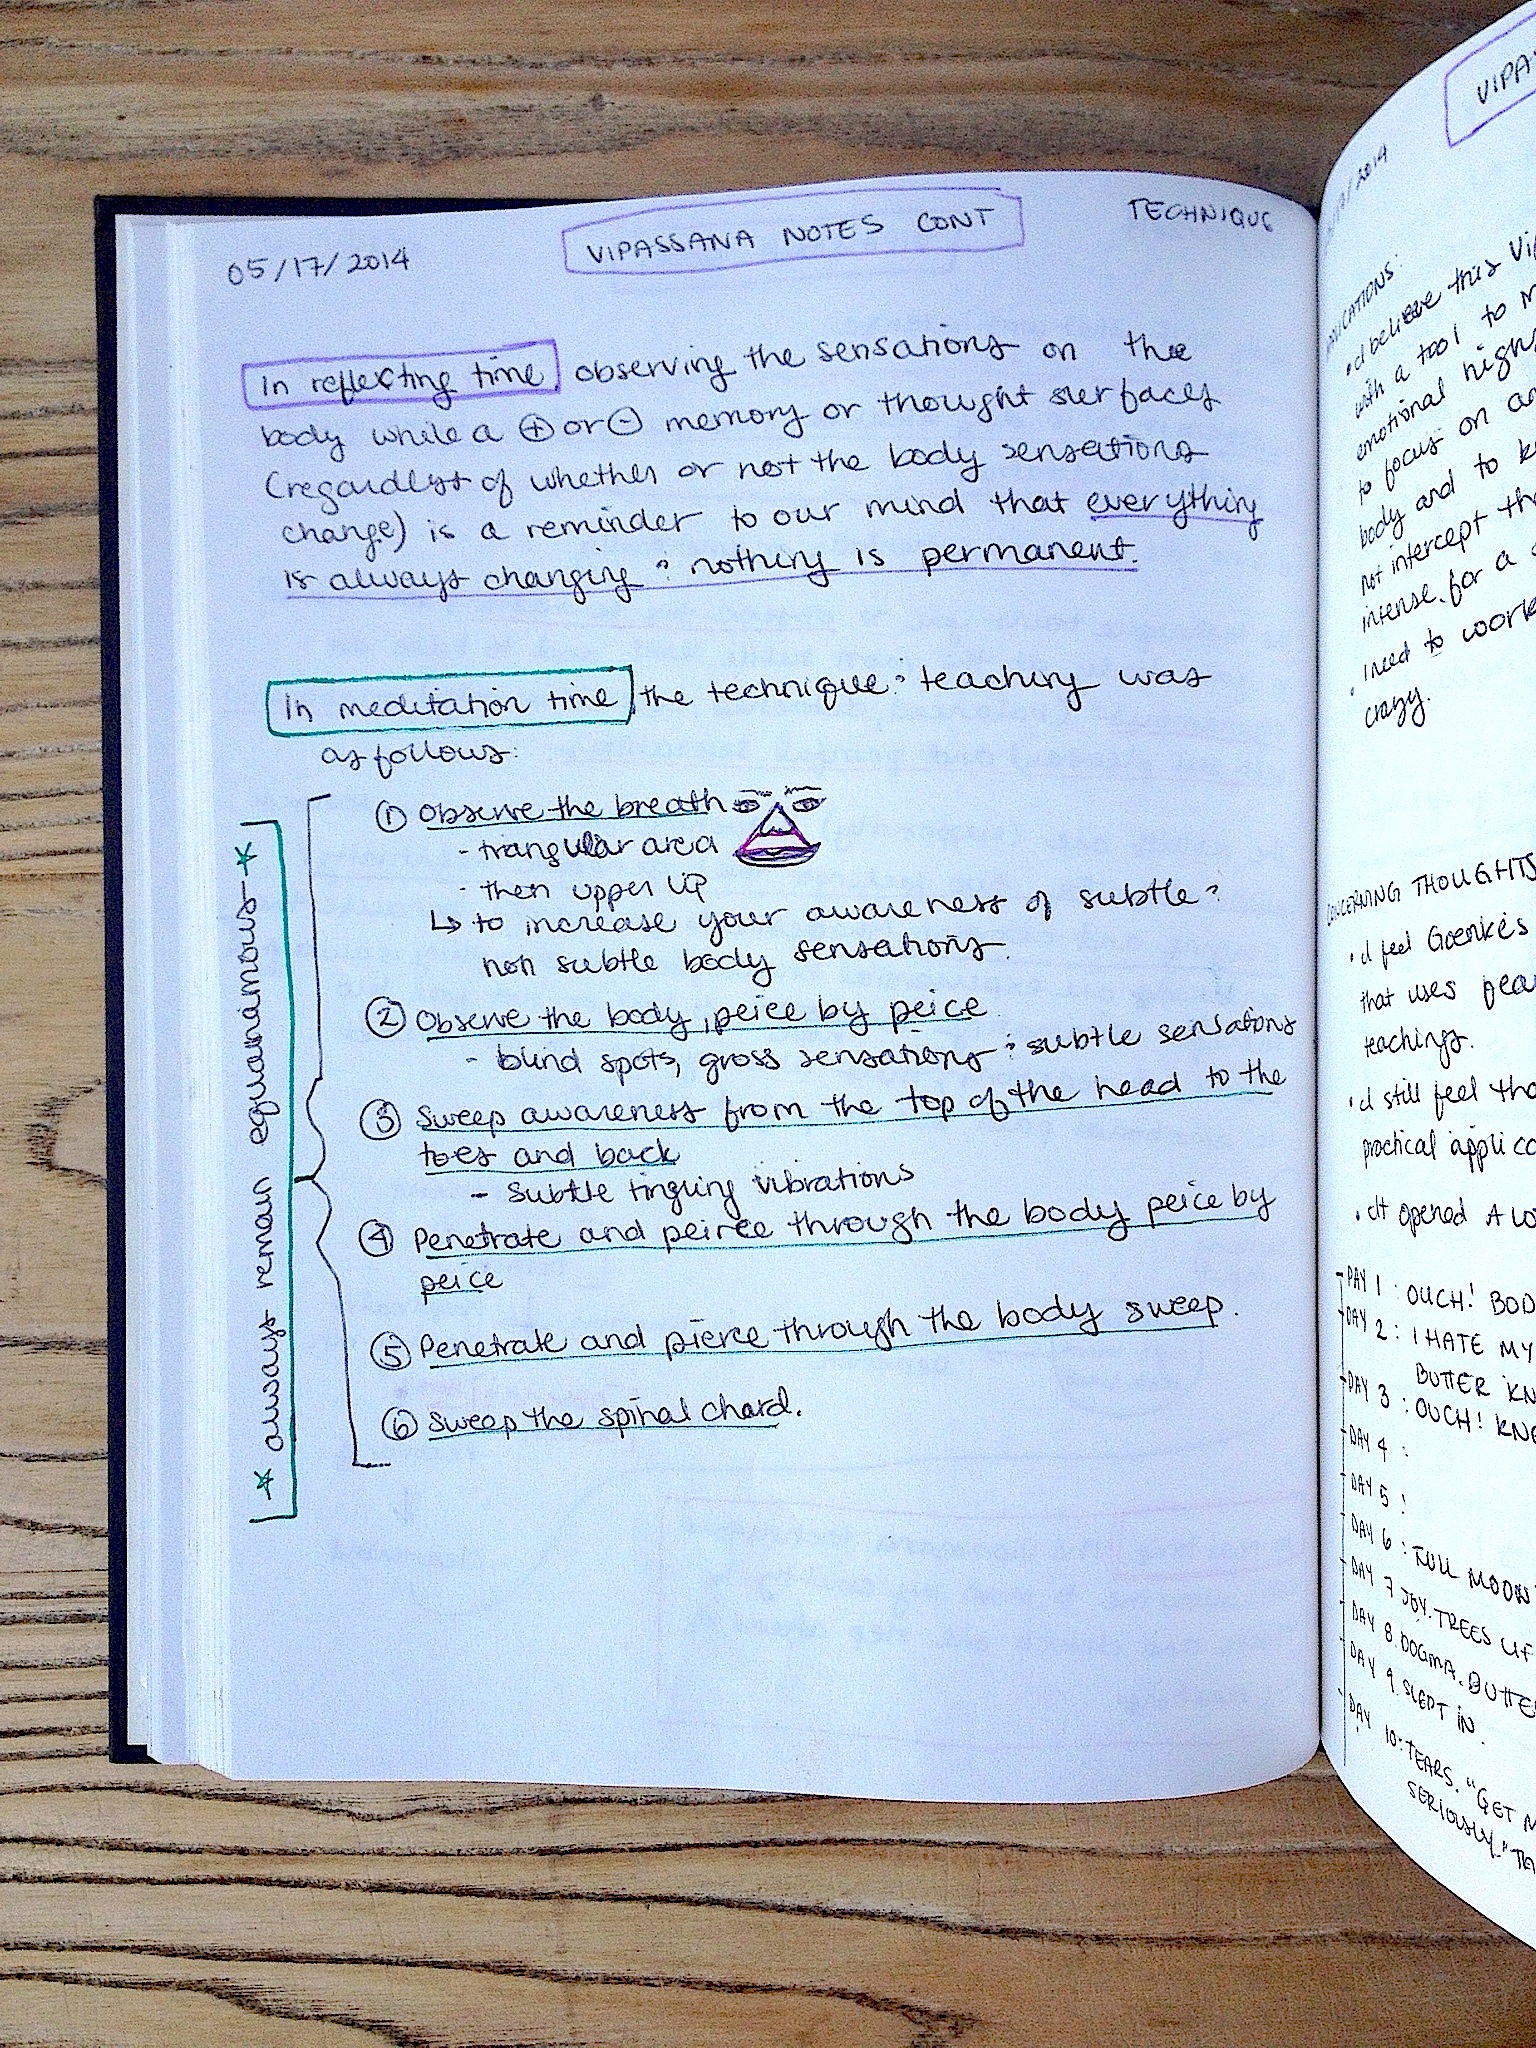 05/17/2014
VIPASSANA NOTES CONT
TECHNIQUE
In reflecting time observing the sensations on the
body while a ⊕ or ⊖ memory or thought surfaces
(regardless of whether or not the body sensations
change) is a reminder to our mind that everything
is always changing : nothing is permanent.
In meditation time the technique : teaching was
as follows:
① Observe the breath
- triangular area
- then upper lip
↳ to increase your awareness of subtle :
non subtle body sensations.
② Observe the body, peice by peice
- blind spots, gross sensations : subtle sensations
③ Sweep awareness from the top of the head to the
toes and back
- subtle tingling vibrations
④ Penetrate and peirce through the body peice by
peice
⑤ Penetrate and pierce through the body sweep.
⑥ Sweep the spinal chard.
* always remain equanamous *
VIPA
/2014
I believe this Vi
with a tool to
emotional high
to focus on
body and to
not intercept
intense. for a
I need to work
crazy.
CONCERNING THOUGHTS
I feel Goenke's
that uses fear
teachings.
I still feel
practical
It opened A
DAY 1 : OUCH! BOD
DAY 2 : I HATE MY
BUTTER KN
DAY 3 : OUCH! KNE
DAY 4 :
DAY 5 :
DAY 6 : FULL MOON
DAY 7 JOY. TREES
DAY 8. DOGMA. BUTTE
DAY 9. SLEPT IN.
DAY 10: TEARS. "GET
SERIOUSLY."